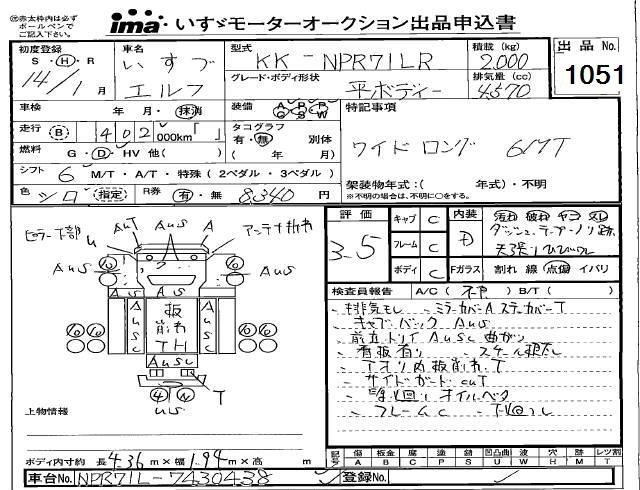 ㊟赤太枠内は必ず
ボールペンで
ご記入下さい。
ima いすゞモーターオークション出品申込書
出品 No.
1051
初度登録
S・H・R
14/1月
車名
いすゞ
エルフ
型式
KK-NPR71LR
グレード・ボディ形状
平ボディー
積載 (kg)
2000
排気量 (cc)
4570
車検 年・月・抹消
装備 A P P A
G S R W
走行 B 402 000km「 」
タコグラフ
有・無 別体
( 年 月)
燃料 G・D・HV 他( )
シフト 6 M/T・A/T・特殊(2ペダル・3ペダル)
色 シロ 指定 R券 有・無 8340 円
特記事項
ワイド ロング 6MT
架装物年式:( 年式)・不明
※不明の場合は、不明に○をする。
ピラー下部 u AuT Aus A アンテナ折れ
Aus Aus
Aus Aus
Ausc 板削れ TH Ausc
Ausc
T
us
上物情報
評価
3.5
キャブ C
フレーム C
ボディ C
内装 D
汚れ 破れ ヤコ スレ
ダッシュ、テープノリ跡
天張りひびわれ
Fガラス 割れ 線 点傷 イバリ
検査員報告 A/C( 不明 ) B/T( )
- 排気モレ - ミラーカバーA ステーカバーT
- キャブバック Aus
- 前立、トリイ Ausc 曲がり
- 看板有り
- アオリ内板削れ T
- サイドガード cuT
- フレームC
ボディ内寸約 長 4.36 m×幅 1.94 m×高 m
記号 傷 板金 腐 塗 錆 凹凸曲 波 穴 跡 レツ割
A B C P S U W H M T
車台No. NPR71L-7430438
登録No.